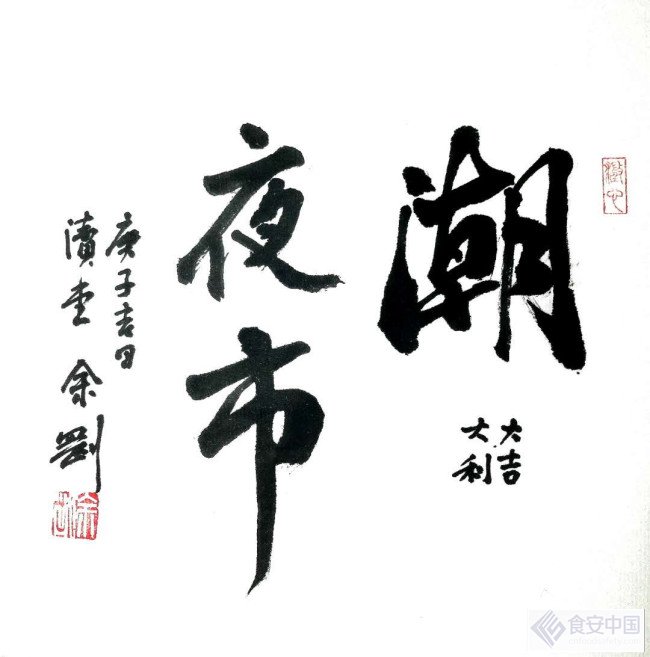 潮
大吉
大利
夜市
庚子吉日
余剛
食安中国
cnfoodsafety.com